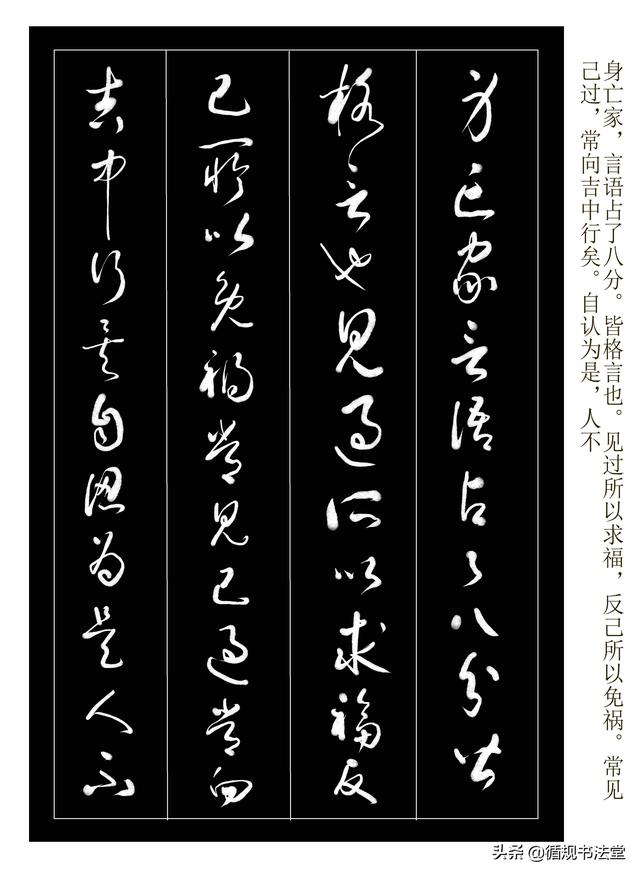 身亡家，言语占了八分。皆格言也。见过所以求福，反己所以免祸。常见
己过，常向吉中行矣。自认为是，人不
身亡家言語占了八分皆
格言也見過所以求福反
己所以免禍常見己過常向
吉中行矣自認為是人不
头条 @循规书法堂